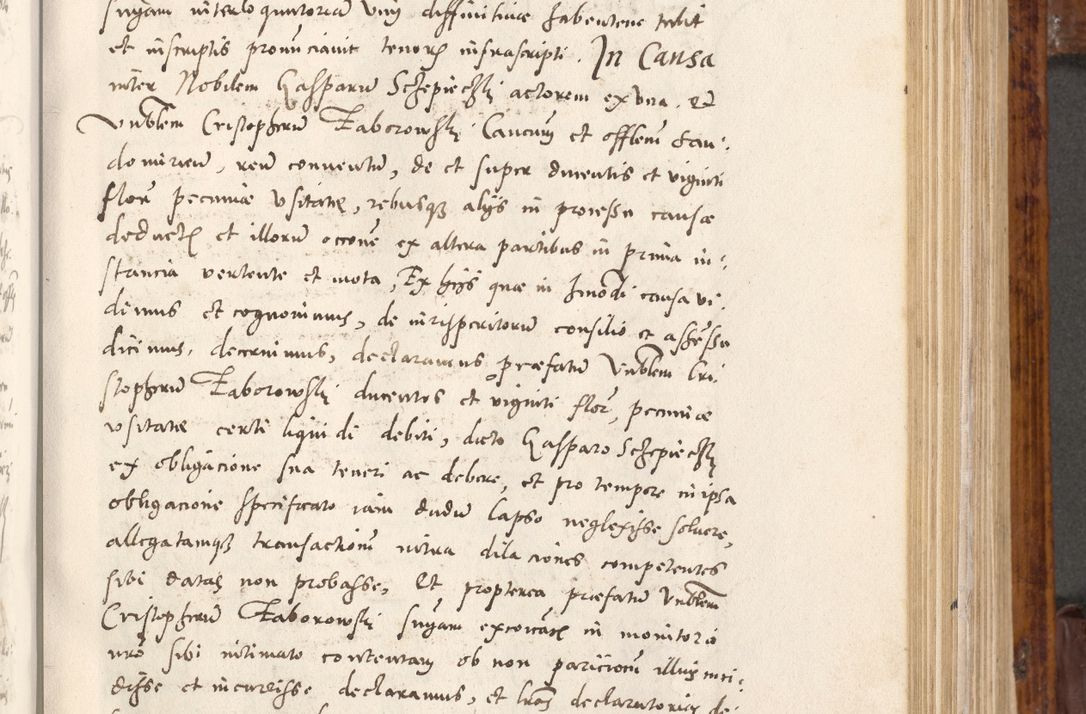 sniam interloquutoriam vim diffinitivae habentem tulit
et inscriptis pronunciavit tenoris infrascripti. In Causa
inter Nobilem Gasparum Sczepieczki actorem ex vna. Et
Vnblem Cristopherum Taborowski Canonicum et offlem San:
domirien, reum conventum, de et super ducentis et viginti
flor pecuniae vsitatae, rebusq alijs in processu causae
deductis et illorum occone ex altera partibus in prima in:
stancia vertente et mota, Ex hijs quae in hmodi causa vi:
dimus et cognovimus, de iurisperitorum consilio et assessu
dicimus, decernimus, declaramus praefatum Vnblem Cri:
stopherum Taborowski ducentos et viginti flor, pecuniae
vsitatae certi liquidi debiti, dicto Gasparo Sczepieczki
ex obligacione sua teneri ac debere, et pro tempore in ipsa
obligacione specificato iam dudum lapso neglexisse solvere,
allegatamq transactionem intra dilaciones competentes
sibi datas non probasse, Et propterea praefatum Vnblem
Cristopherum Taborowski sniam excoicatis in monitorio
nro sibi intimato contentam ob non paricionem illius inci:
disse et incurrisse declaramus, et lras declaratorias de: